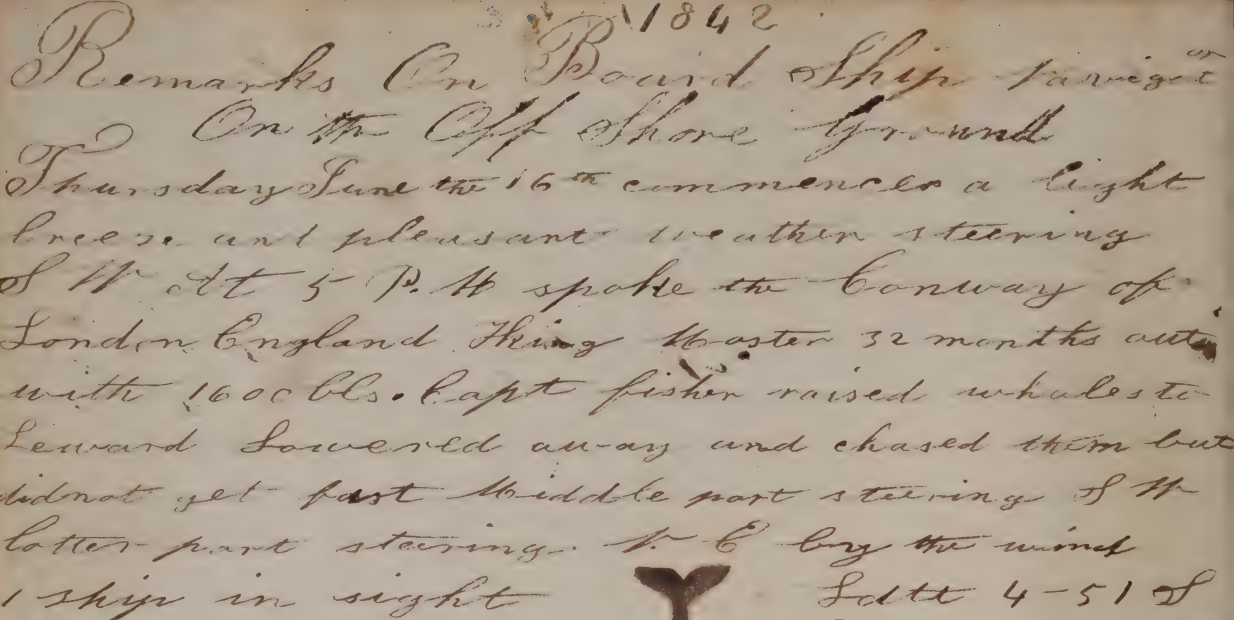 1842
Remarks On Board Ship Navigator
On the Off Shore Ground
Thursday June the 16th commences a light
breeze and pleasant weather steering
S W At 5 P. M spoke the Conway of
London England King Master 32 months out
with 1600 bls. Capt fisher raised whales to
Leward Lowered away and chased them but
didnot get fast Middle part steering S W
latter part steering N. E by the wind
1 ship in sight Latt 4-51 S